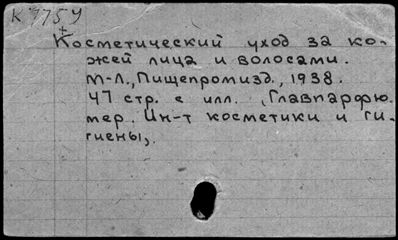 К 7759
Косметический уход за ко-
жей лица и волосами.
М-Л., Пищепромизд., 1938.
47 стр. с илл. , Главпарфю.
мер. Ин-т косметики и ги-
гиены,.